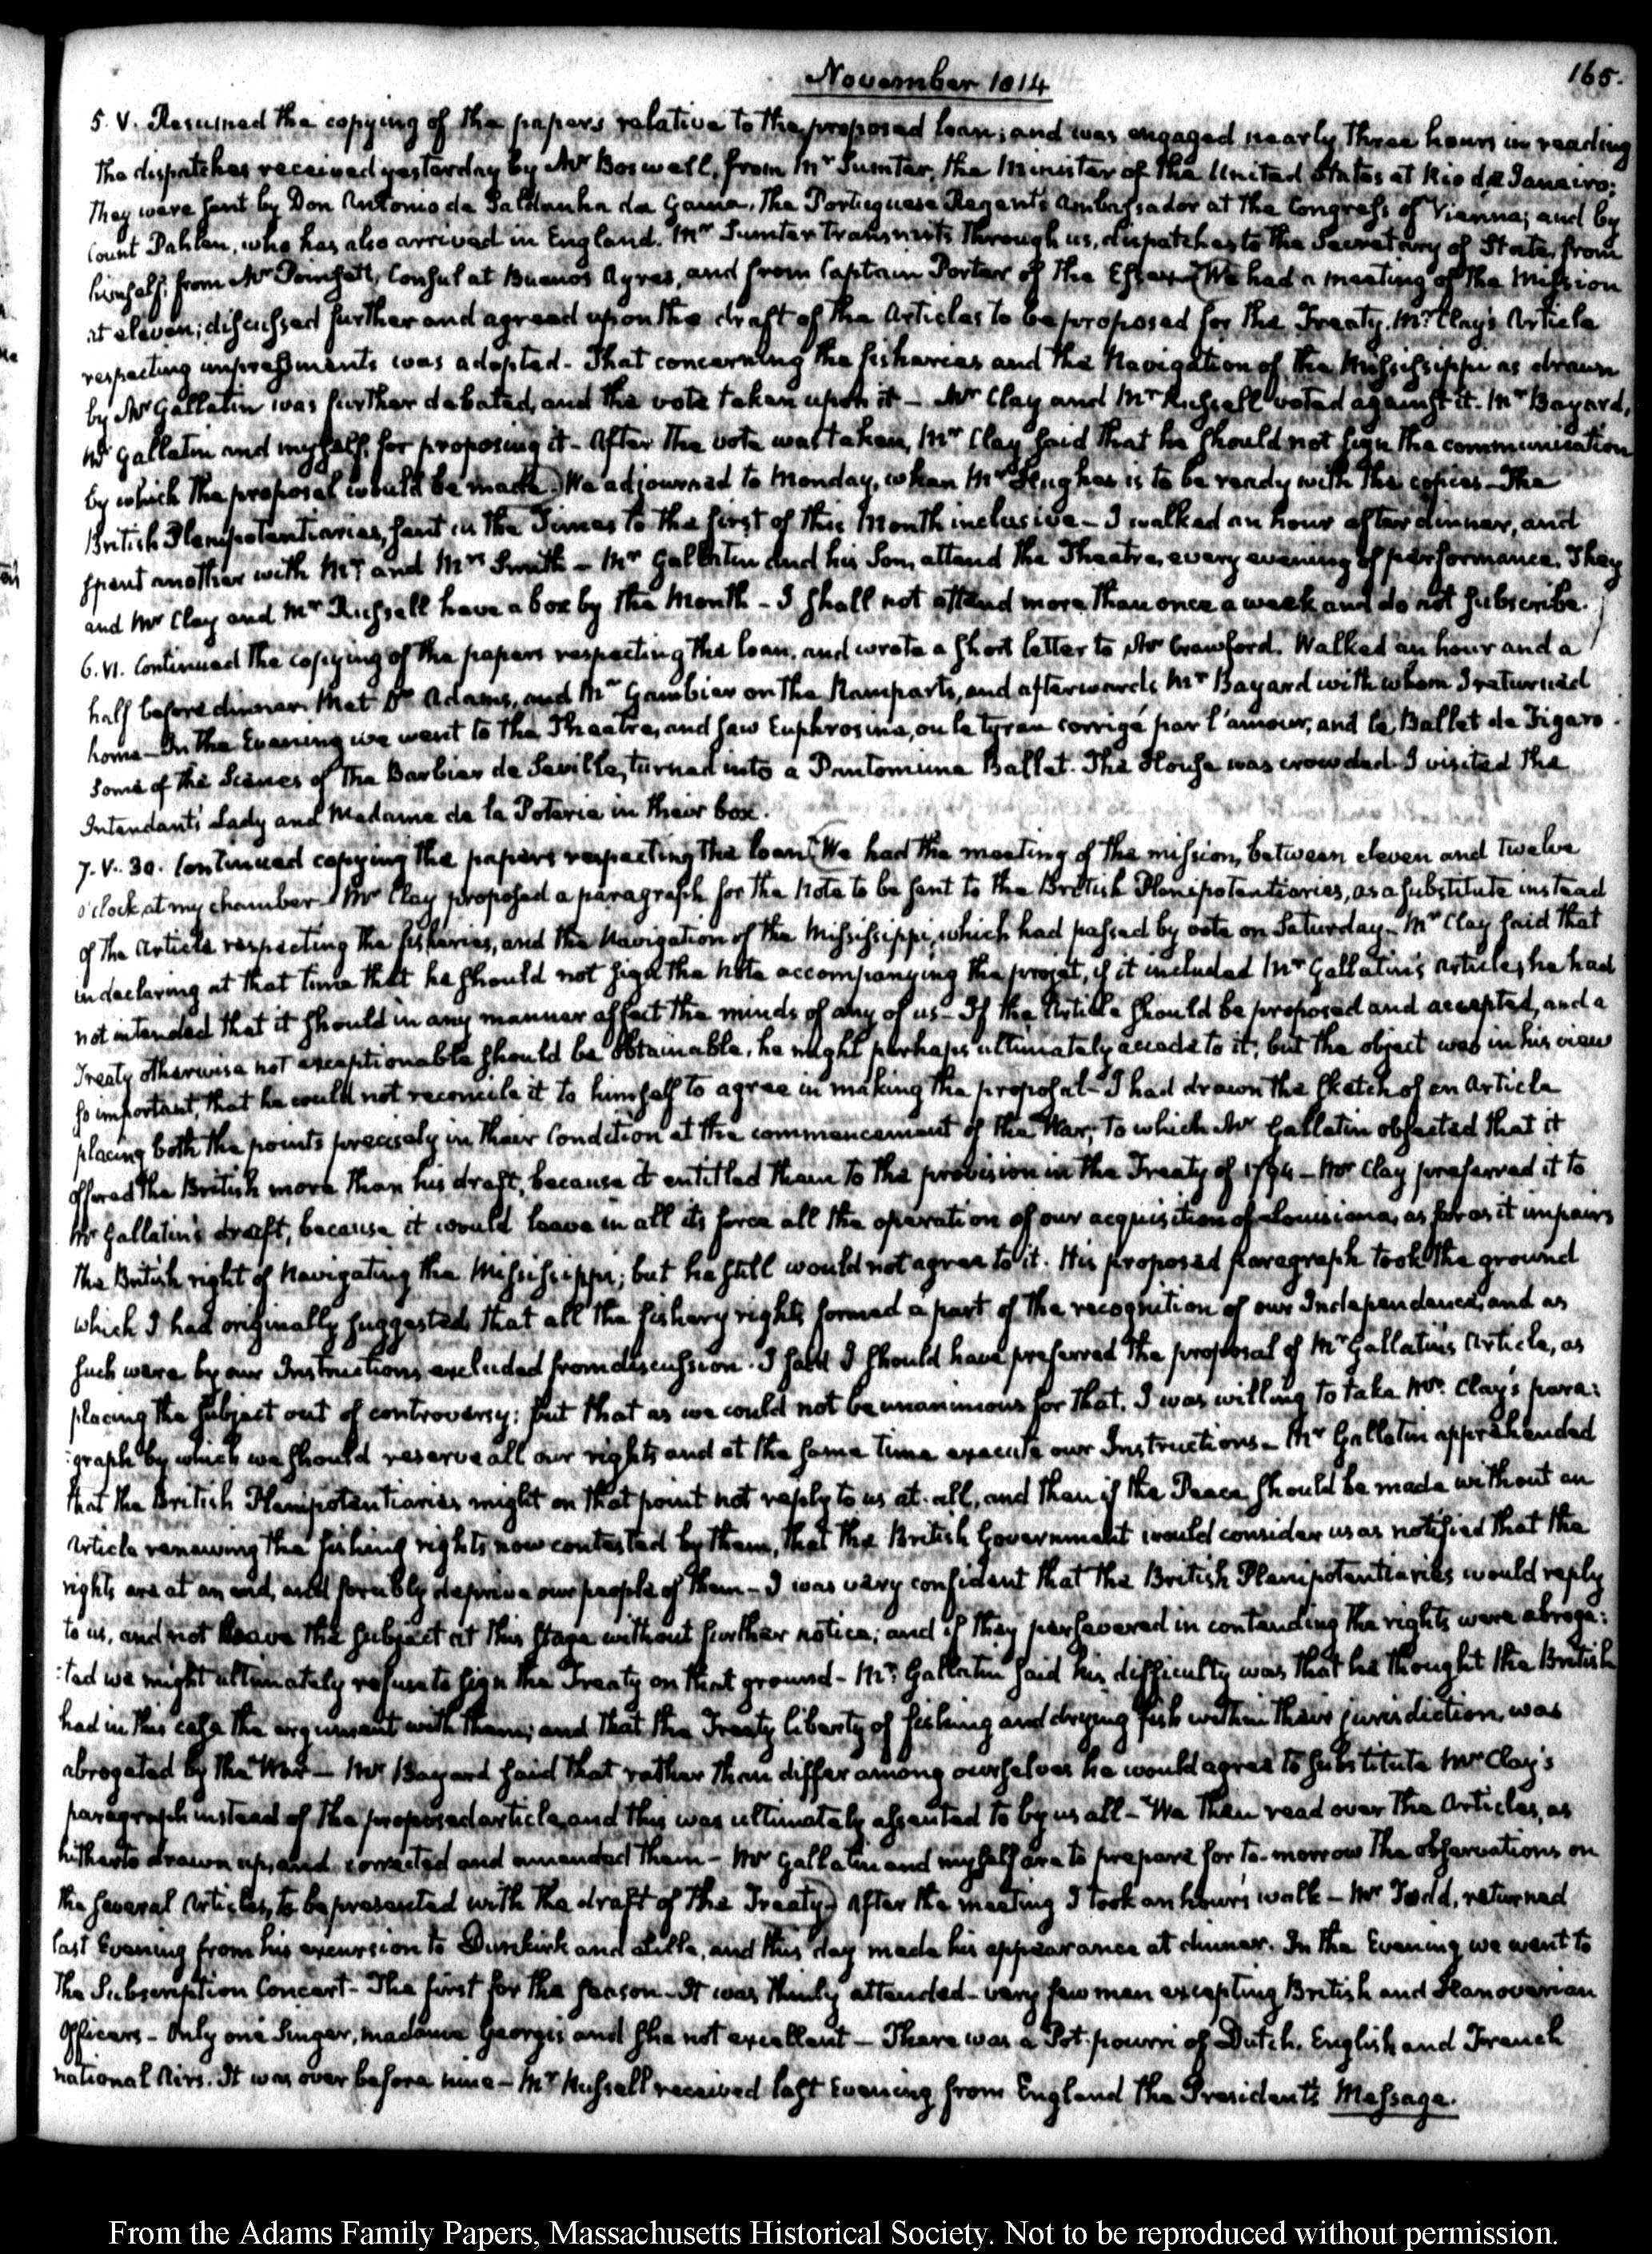 November 1814
165.
5. V. Resumed the copying of the papers relative to the proposed loan; and was engaged nearly three hours in reading
the dispatches received yesterday by Mr Boswell, from Mr Sumter, the Minister of the United States at Rio de Janeiro;
they were sent by Don Antonio de Saldanha da Gama, the Portuguese Regent's Ambassador at the Congress of Vienna; and by
Count Pahlen, who has also arrived in England. Mr Sumter transmits through us, dispatches to the Secretary of State, from
himself, from Mr Poinsett, Consul at Buenos Ayres, and from Captain Porter of the Essex. (We had a meeting of the Mission
at eleven; discussed further and agreed upon the draft of the Articles to be proposed for the Treaty. Mr Clay's Article
respecting impressments was adopted. That concerning the fisheries and the Navigation of the Mississippi as drawn
by Mr Gallatin was further debated, and the vote taken upon it — Mr Clay and Mr Russell voted against it. Mr Bayard,
Mr Gallatin and myself, for proposing it — After the vote was taken, Mr Clay said that he should not sign the communication
by which the proposal would be made.) We adjourned to Monday, when Mr Hughes is to be ready with the copies — The
British Plenipotentiaries, sent in the Times to the first of this Month inclusive — I walked an hour after dinner, and
spent another with Mr and Mrs Smith — Mr Gallatin and his Son, attend the Theatre, every evening of performance. They
and Mr Clay and Mr Russell have a box by the Month — I shall not attend more than once a week and do not subscribe.
6. VI. Continued the copying of the papers respecting the loan, and wrote a short letter to Mr Crawford. Walked an hour and a
half before dinner. Met Dr Adams, and Mr Gambier on the Ramparts, and afterwards Mr Bayard with whom I returned
home — In the Evening we went to the Theatre, and saw Euphrosine, ou le tyran corrigé par l'amour, and le Ballet de Figaro.
Some of the Scenes of the Barbier de Seville, turned into a Pantomime Ballet. The House was crowded. I visited the
Intendant's Lady and Madame de la Poterie in their box.
7. V. 30. Continued copying the papers respecting the loan. (We had the meeting of the mission, between eleven and twelve
o'clock, at my chamber. Mr Clay proposed a paragraph for the Note to be sent to the British Plenipotentiaries, as a substitute instead
of the Article respecting the fisheries, and the Navigation of the Mississippi, which had passed by vote on Saturday — Mr Clay said that
in declaring at that time that he should not sign the Note accompanying the projet, if it included Mr Gallatin's Article, he had
not intended that it should in any manner affect the minds of any of us — If the Article should be proposed and accepted, and a
Treaty otherwise not exceptionable should be obtainable, he might perhaps ultimately accede to it; but the object was in his view
so important, that he could not reconcile it to himself to agree in making the proposal — I had drawn the sketch of an Article
placing both the points precisely in their Condition at the commencement of the War; to which Mr Gallatin objected that it
offered the British more than his draft, because it entitled them to the provision in the Treaty of 1794 — Mr Clay preferred it to
Mr Gallatin's draft, because it would leave in all its force all the operation of our acquisition of Louisiana, as far as it impairs
the British right of Navigating the Mississippi; but he still would not agree to it. His proposed paragraph took the ground
which I had originally suggested, that all the fishery rights formed a part of the recognition of our Independence, and as
such were by our Instructions excluded from discussion. I said I should have preferred the proposal of Mr Gallatin's Article, as
placing the subject out of controversy: but that as we could not be unanimous for that, I was willing to take Mr Clay's para:
:graph by which we should reserve all our rights and at the same time execute our Instructions — Mr Gallatin apprehended
that the British Plenipotentiaries might on that point not reply to us at all, and then if the Peace should be made without an
Article renewing the fishing rights now contested by them, that the British Government would consider us as notified that the
rights are at an end, and forcibly deprive our people of them — I was very confident that the British Plenipotentiaries would reply
to us, and not leave the subject at this stage without further notice; and if they persevered in contending the rights were abroga:
:ted we might ultimately refuse to sign the Treaty on that ground — Mr Gallatin said his difficulty was that he thought the British
had in this case the argument with them; and that the Treaty liberty of fishing and drying fish within their jurisdiction, was
abrogated by the War — Mr Bayard said that rather than differ among ourselves he would agree to substitute Mr Clay's
paragraph instead of the proposed article, and this was ultimately assented to by us all — We then read over the Articles, as
hitherto drawn up, and corrected and amended them — Mr Gallatin and myself are to prepare for to-morrow the observations on
the several Articles, to be presented with the draft of the Treaty.) After the meeting I took an hour's walk — Mr Todd, returned
last Evening from his excursion to Dunkirk and Lille, and this day made his appearance at dinner. In the Evening we went to
the Subscription Concert — The first for the season — It was thinly attended — very few men excepting British and Hanoverian
Officers — Only one Singer, Madame Georgis and she not excellent — There was a Pot-pourri of Dutch, English and French
national Airs. It was over before nine — Mr Russell received last Evening from England the President's Message.
From the Adams Family Papers, Massachusetts Historical Society. Not to be reproduced without permission.